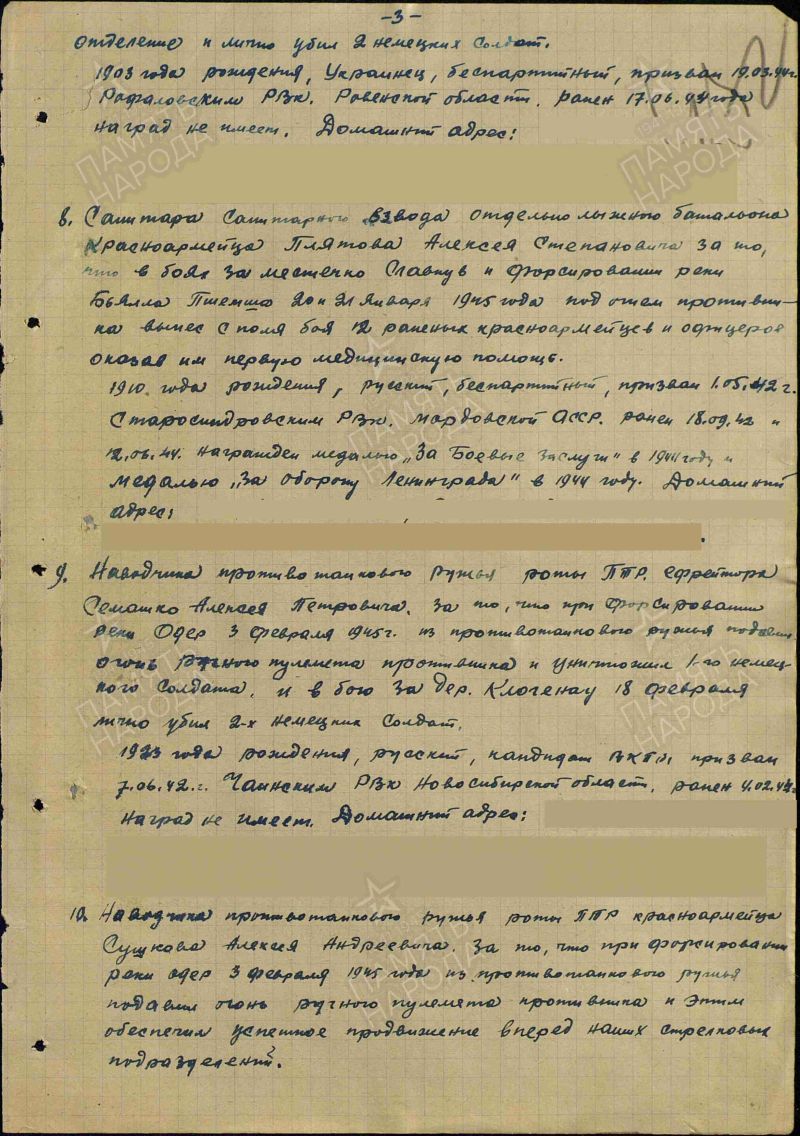 -3-
отделение и лично убил 2 немецких солдат.
1903 года рождения, Украинец, беспартийный, призван 19.03.44г.
Рафаловским РВК. Ровенской области. ранен 17.06.44 года
наград не имеет. Домашний адрес:
8. Санитара санитарного взвода отдельно лыжного батальона
Красноармейца Плятова Алексея Степановича за то,
что в боях за местечко Славкув и форсировании реки
Бьялла Пшемша 20 и 21 января 1945 года под огнем противни-
ка вынес с поля боя 12 раненых красноармейцев и офицеров
оказав им первую медицинскую помощь.
1910 года рождения, русский, беспартийный, призван 1.05.42 г.
Старосиндровским РВК. Мордовской АССР. ранен 18.09.42 и
12.06.44. награжден медалью "За Боевые Заслуги" в 1944 году и
медалью "За оборону Ленинграда" в 1944 году. Домашний
адрес:
9. Наводчика противотанкового ружья роты ПТР. ефрейтора
Семашко Алексея Петровича. За то, что при форсировании
реки Одер 3 февраля 1945 г. из противотанкового ружья подавил
огонь ручного пулемета противника и уничтожил 1-го немец-
кого солдата, и в бою за дер. Клогенау 18 февраля
лично убил 2-х немецких солдат.
1923 года рождения, русский, кандидат ВКП/б призван
7.06.42.г. Чаинским РВК Новосибирской области. ранен 4.02.44
наград не имеет. Домашний адрес:
10. Наводчика противотанкового ружья роты ПТР красноармейца
Сушкова Алексея Андреевича. За то, что при форсировании
реки Одер 3 февраля 1945 года из противотанкового ружья
подавил огонь ручного пулемета противника и этим
обеспечил успешное продвижение вперед наших стрелковых
подразделений.